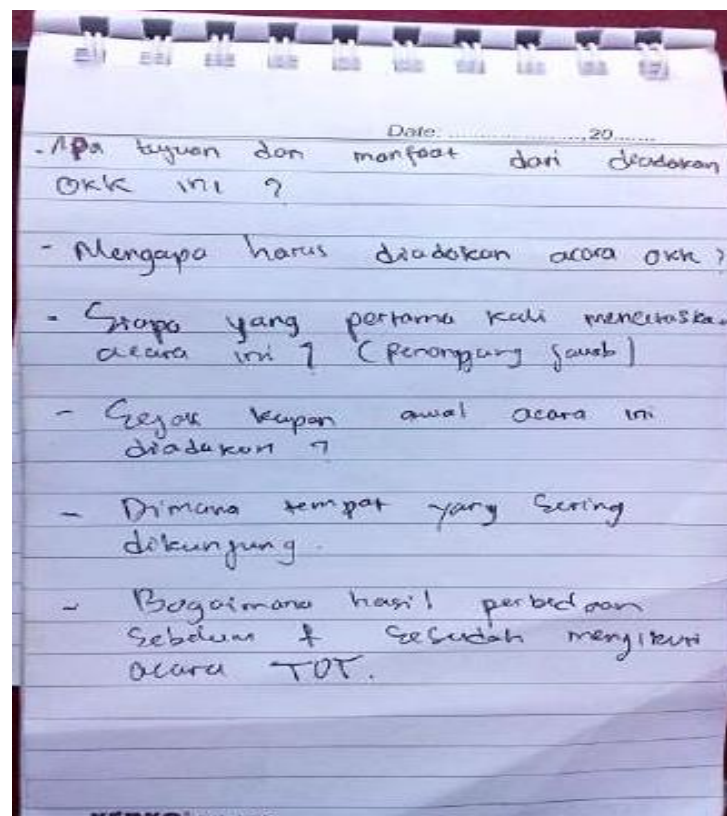 Date: ..................... 20.......
- Apa tujuan dan manfaat dari diadakan
OKK ini ?
- Mengapa harus diadakan acara OKK ?
- Siapa yang pertama kali mencetuska
acara ini ? (Penanggung jawab)
- Sejak kapan awal acara ini
diadakan ?
- Dimana tempat yang sering
dikunjung.
- Bagaimana hasil perbedaan
Sebelum & Sesudah mengikuti
acara TOT.